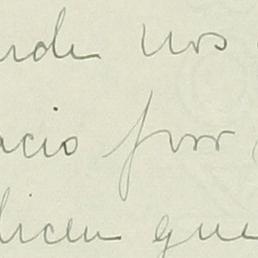 nde nos
acio por
dicen que